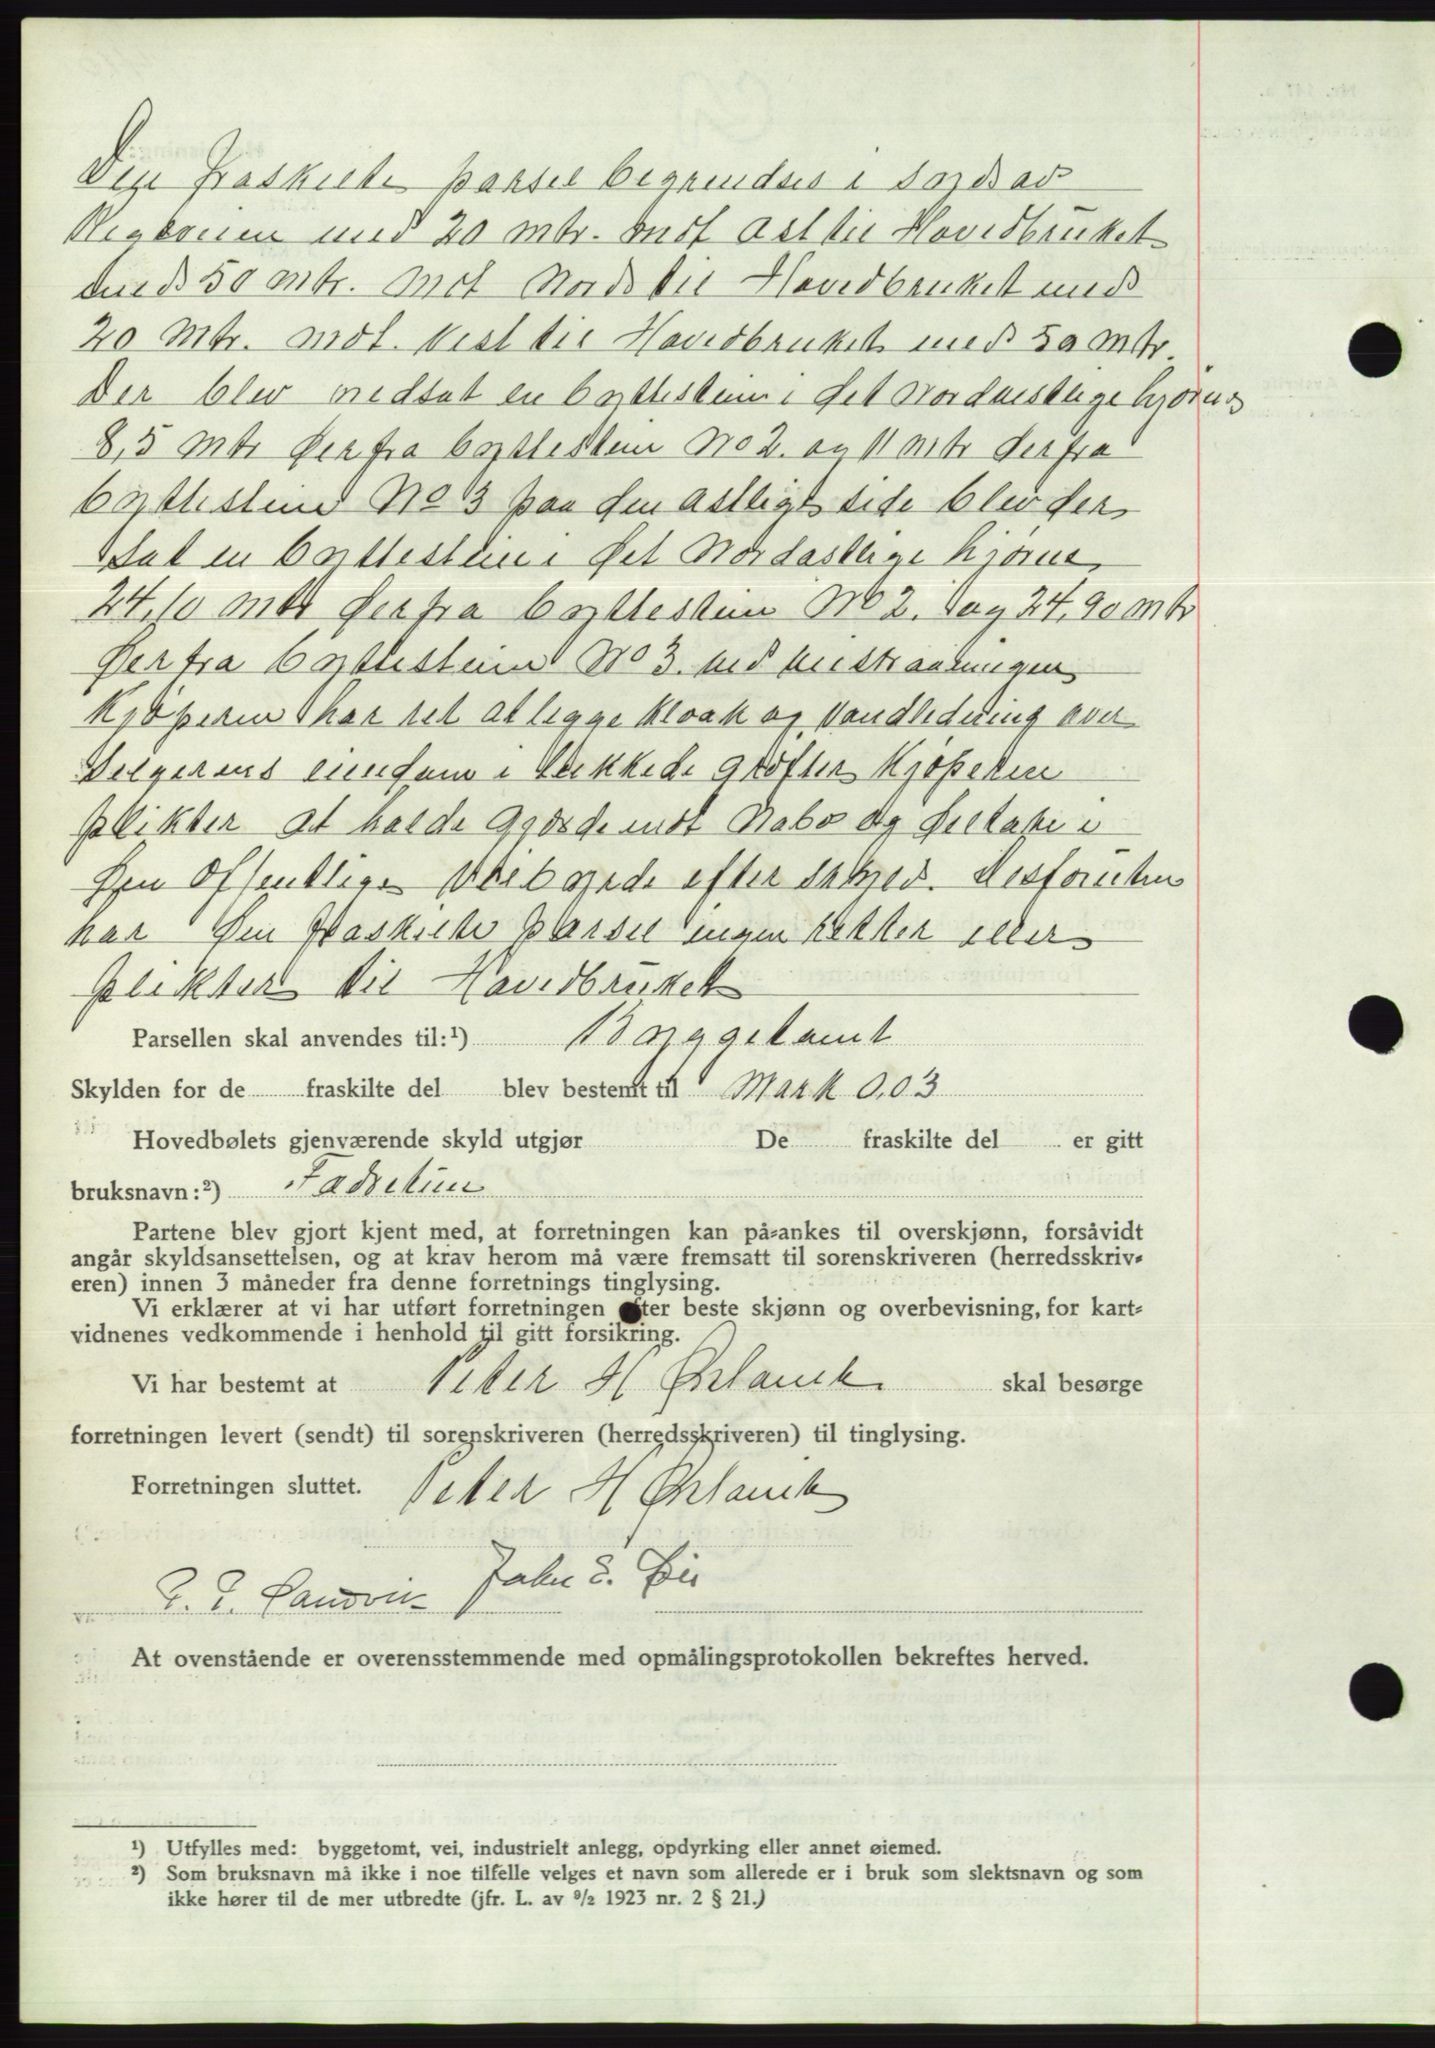 Den fraskilte parsel begrendses i Syd av
Rigsveien med 20 mtr. mot Ast til Hovedbruket
med 50 mtr. Mot Nord til Hovedbruket med
20 Mtr. mot. Vest til Hovedbruket med 50 Mtr.
Der blev nedsat en byttestein i det Nordvestlige hjørne
8,5 Mtr derfra byttestein No 2. og 11 mtr derfra
byttestein No 3 paa den astlige side blev der
sat en byttestein i det Nordastlige hjørne
24,10 mtr derfra byttestein No 2. og 24,90 Mtr
derfra byttestein No 3. ved
Kjøperen har ret at legge Kloak og Vandledning over
Selgerens eiendom i lukkede grøfter Kjøperen
plikter at halde Gjærde mot Nabo og deltake i
den Offentlige Veibyrde efter skyld. Desforuten
har den fraskilte parsel ingen retter eller
plikter til Hovedbruket
Parsellen skal anvendes til:¹) Byggetomt
Skylden for de fraskilte del blev bestemt til Mark 0,03
Hovedbølets gjenværende skyld utgjør De fraskilte del er gitt
bruksnavn:²)
Partene blev gjort kjent med, at forretningen kan på-ankes til overskjønn, forsåvidt
angår skyldsansettelsen, og at krav herom må være fremsatt til sorenskriveren (herredsskriv-
eren) innen 3 måneder fra denne forretnings tinglysing.
Vi erklærer at vi har utført forretningen efter beste skjønn og overbevisning, for kart-
vidnenes vedkommende i henhold til gitt forsikring.
Vi har bestemt at Peter H Ørlanik skal besørge
forretningen levert (sendt) til sorenskriveren (herredsskriveren) til tinglysing.
Forretningen sluttet. Peter H Ørlanik
Sandvik John E.
At ovenstående er overensstemmende med opmålingsprotokollen bekreftes herved.
¹) Utfylles med: byggetomt, vei, industrielt anlegg, opdyrking eller annet øiemed.
²) Som bruksnavn må ikke i noe tilfelle velges et navn som allerede er i bruk som slektsnavn og som
ikke hører til de mer utbredte (jfr. L. av ⁹/₂ 1923 nr. 2 § 21.)